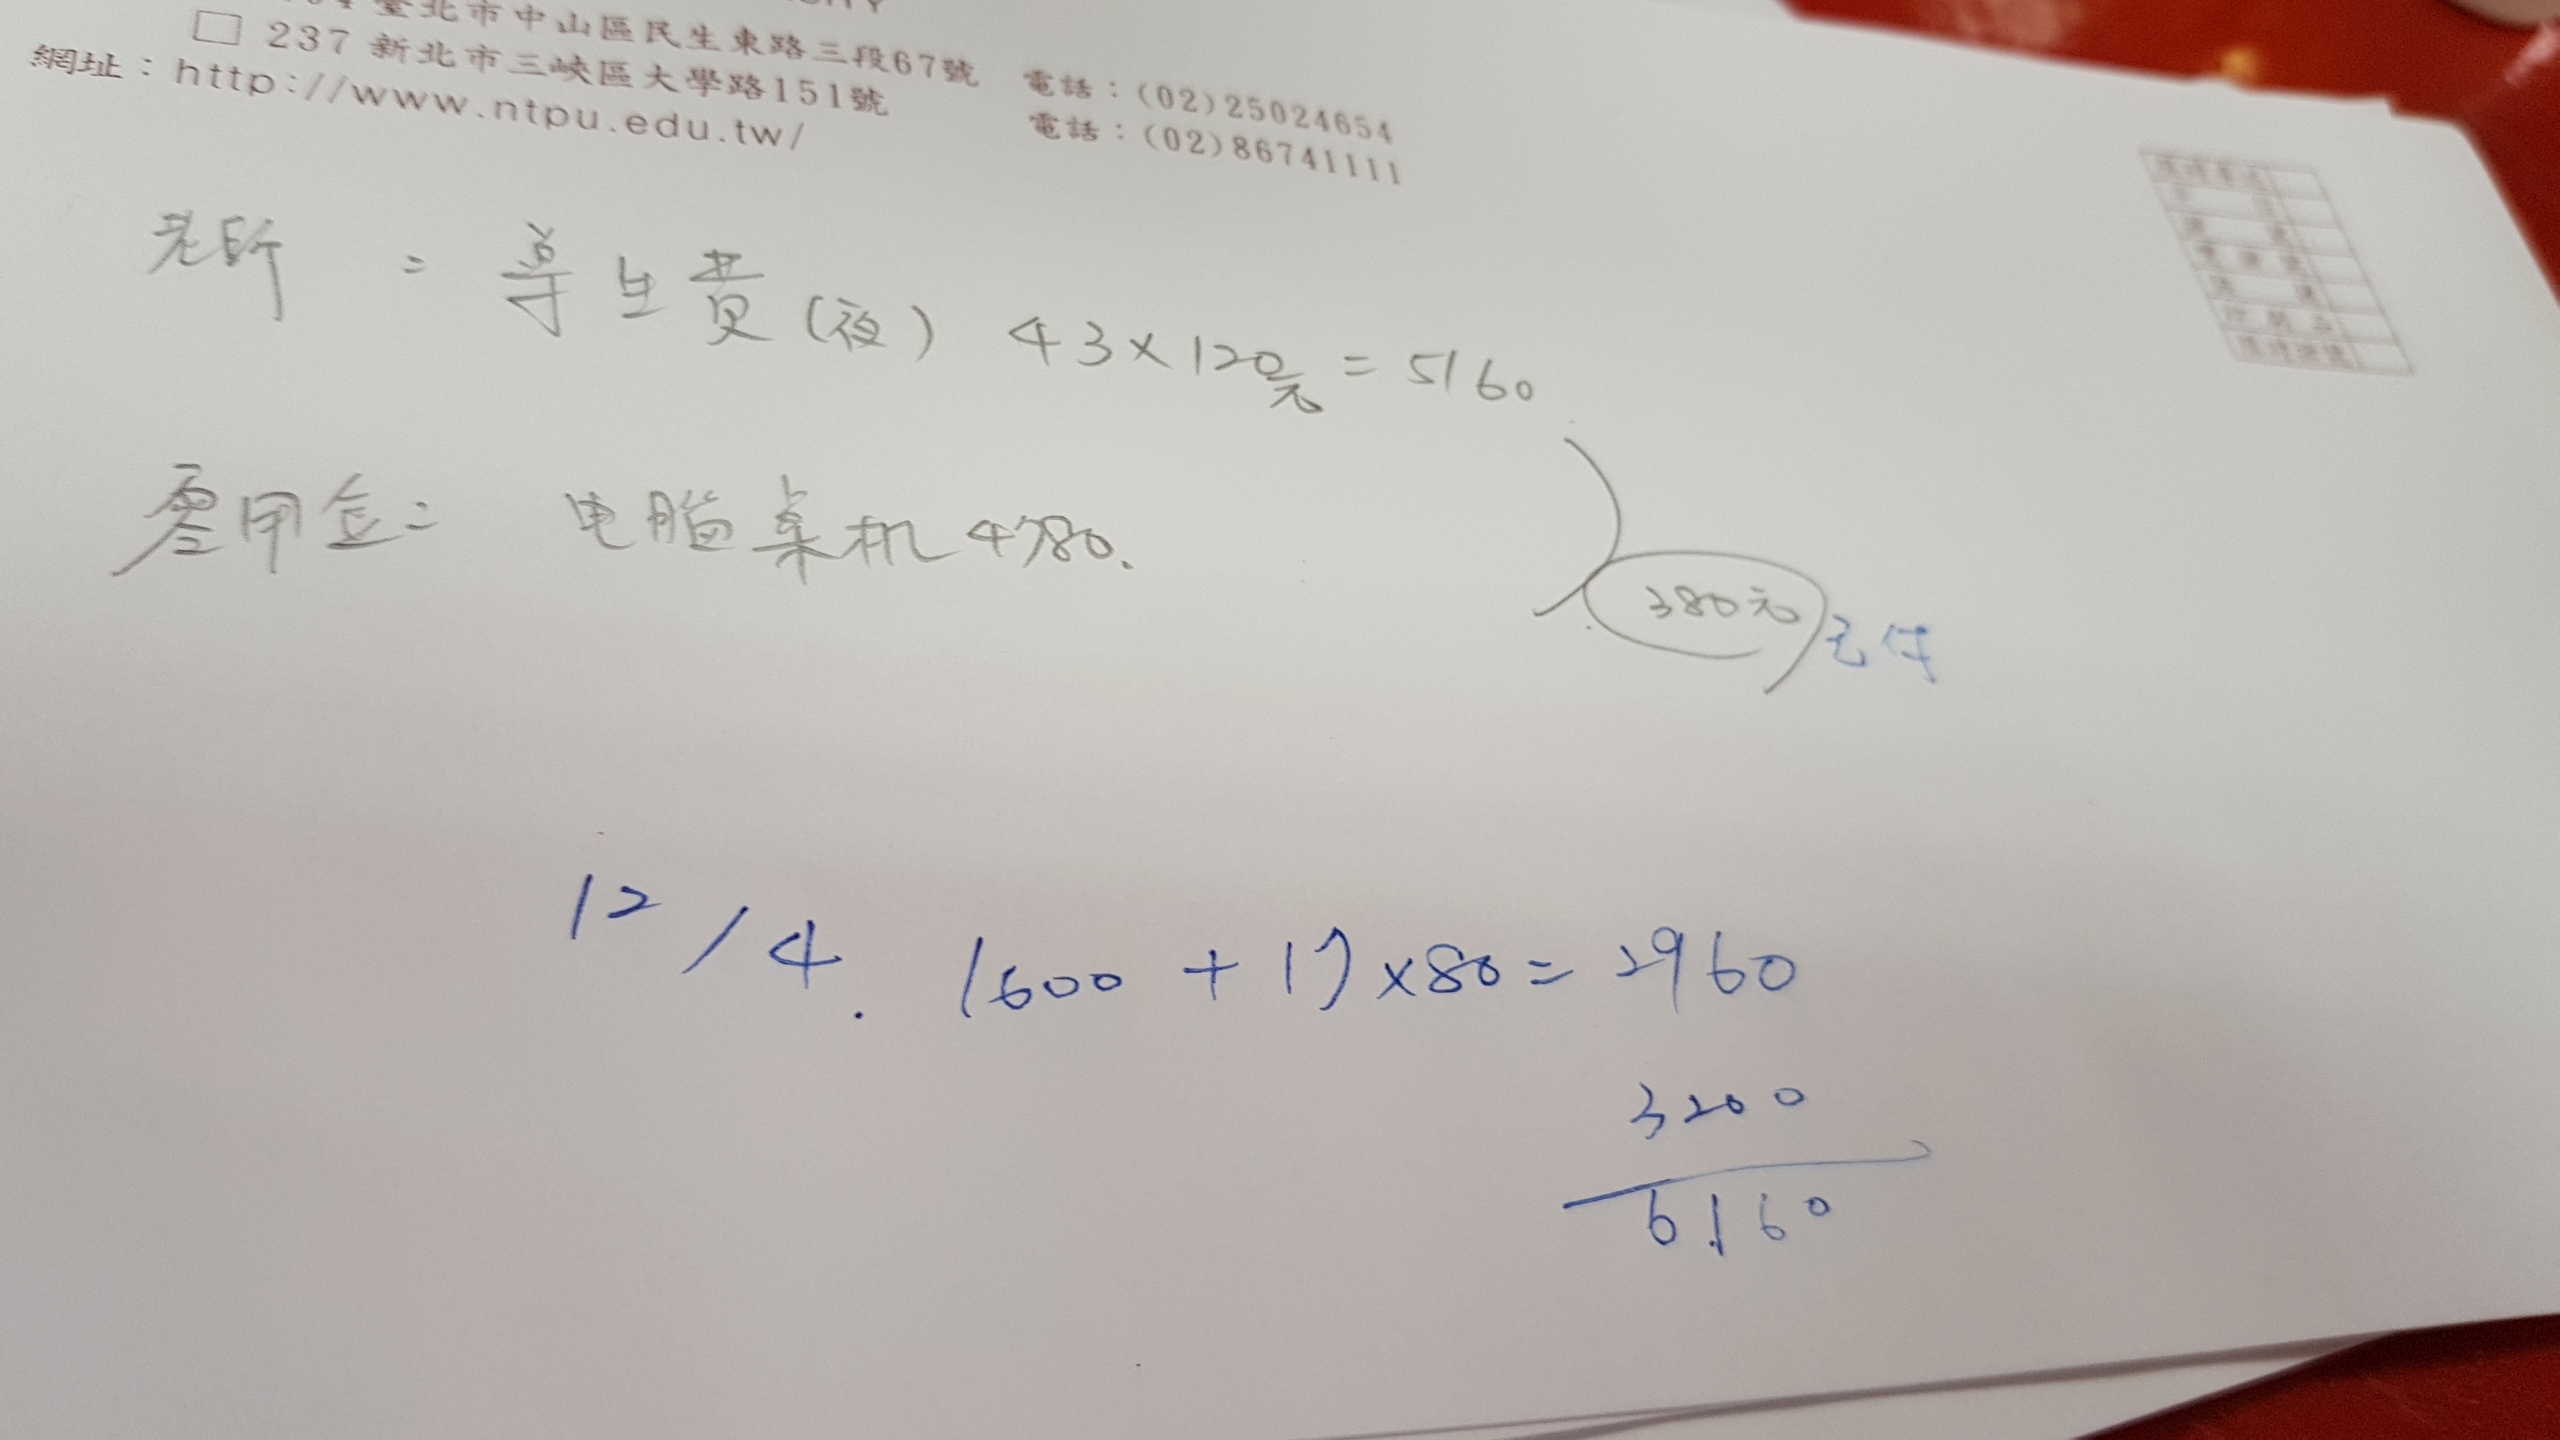 臺北市中山區民生東路三段67號 電話：(02)25024654
□ 237 新北市三峽區大學路151號 電話：(02)86741111
網址：http://www.ntpu.edu.tw/
老師 = 導生費(夜) 43×120元 = 5160
零用金= 电腦桌机 4780.
380元 已付
12/4. 1600 + 17×80 = 2960
3200
6160